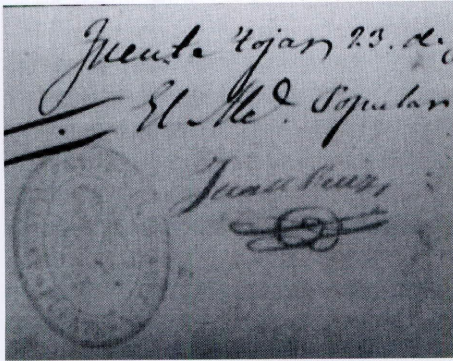 Fuente Tojar 23. de
El Alc.e Popular
Juan Ruiz